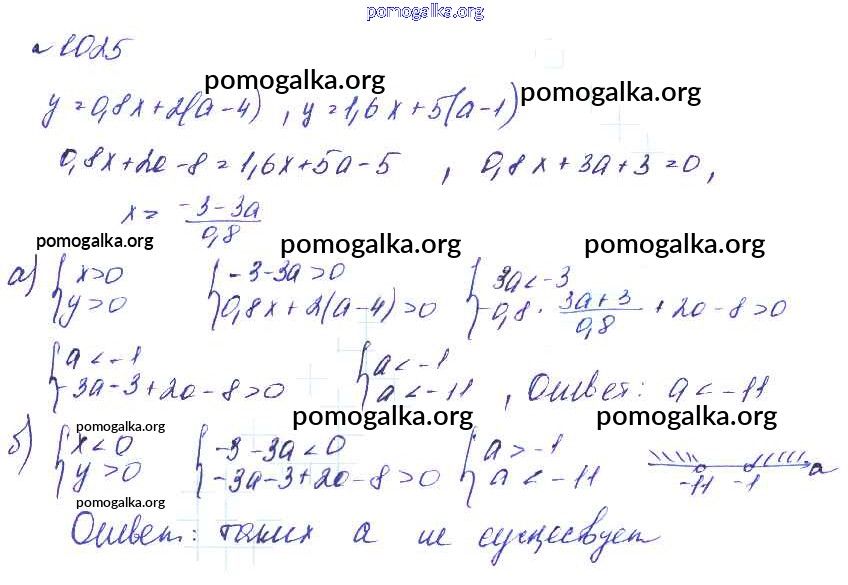 pomogalka.org
№ 1025
pomogalka.org pomogalka.org
y = 0,8x + 2(a - 4) , y = 1,6x + 5(a - 1)
0,8x + 2a - 8 = 1,6x + 5a - 5 , 0,8x + 3a + 3 = 0,
x = (-3 - 3a)/0,8
pomogalka.org pomogalka.org pomogalka.org
а) { x > 0 { -3 - 3a > 0 { 3a < -3
y > 0 0,8x + 2(a - 4) > 0 -0,8 · (3a + 3)/0,8 + 2a - 8 > 0
{ a < -1 { a < -1
-3a - 3 + 2a - 8 > 0 a < -11 , Ответ: a < -11
pomogalka.org pomogalka.org pomogalka.org
б) { x < 0 { -3 - 3a < 0 { a > -1
y > 0 -3a - 3 + 2a - 8 > 0 a < -11 -11 -1 a
pomogalka.org
Ответ: таких a не существует